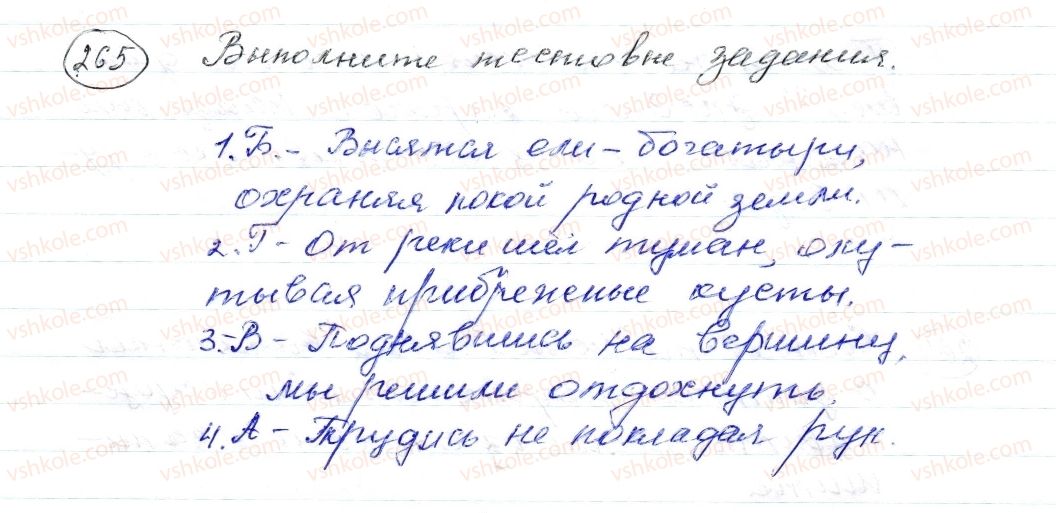 265 Выполните тестовые задания.
1.Б.- Высятся ели-богатыри,
охраняя покой родной земли.
2.Г- От реки шёл туман, оку-
тывая прибрежные кусты.
3.-В- Поднявшись на вершину,
мы решили отдохнуть.
4.А- Трудись не покладая рук.
vshkole.com